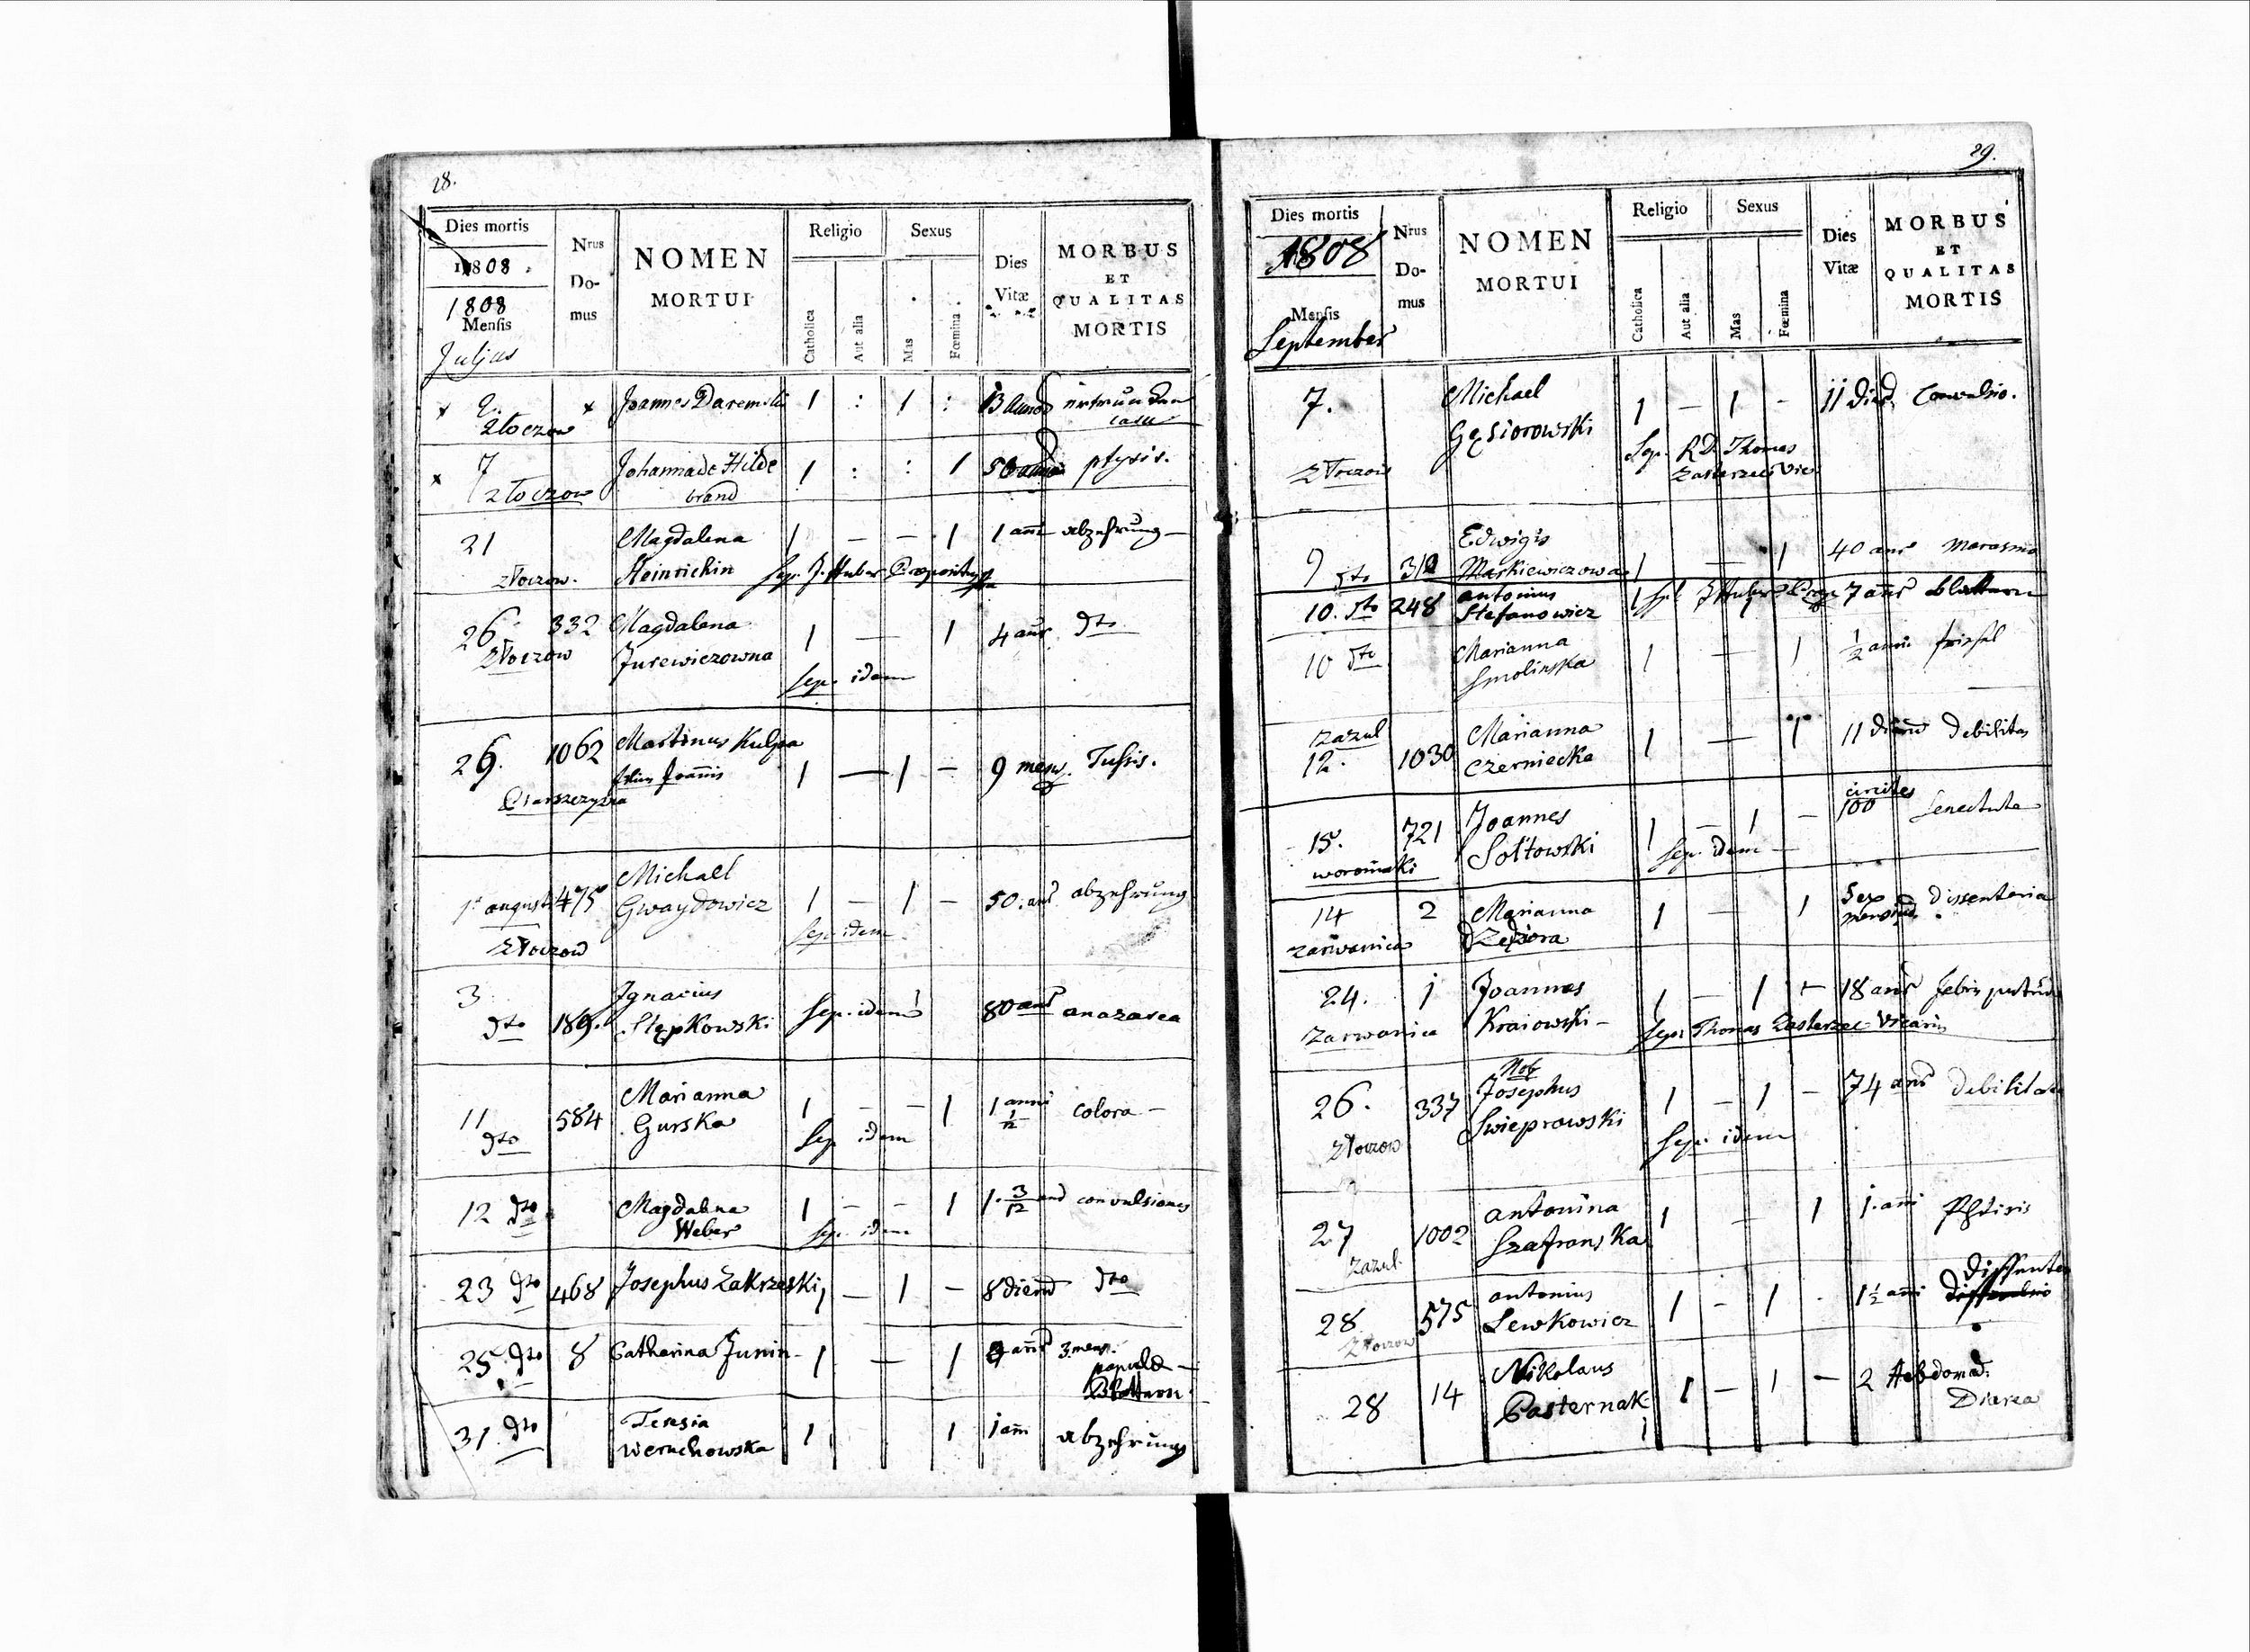 28.
Dies mortis
1808.
1808
Mensis
Julius
Nrus
Do-
mus
NOMEN
MORTUI
Religio
Catholica
Aut alia
Sexus
Mas
Fœmina
Dies
Vitæ
MORBUS
ET
QUALITAS
MORTIS
x 2. x Joannes Daremski 1 : 1 :
Złoczow casu
x 7 Johanna de Hilde 1 : : 1 ptysis.
Złoczow brand
21 Magdalena 1 – – 1 1 anni abzehrung –
Złoczow. Heinrichin Sep. J. Huber Præpositus
26 332 Magdalena 1 — 1 4 anr. dto
Złoczow Jurewiczowna
Sep. idem
26. 1062 Martinus Kulpa
filius Joannis 1 — 1 – 9 mens. Tussis.
1a august 475 Michael
Gwaydowicz 1 – 1 – 50. anr abzehrung
Złoczow Sep. idem
3 189. Ignacius
dto Stępkowski Sep. idem 1 80 anr anazarca
11 584 Marianna 1 – – 1 1 anni
dto Gurska Sep idem 1/12 colora –
12 dto Magdalena 1 – – 1 1. 3/12 convulsiones
Weber Sep. idem
23 dto 468 Josephus Zakrzeski 1 – 1 – 8 dierum dto
25. dto 8 Catharina Junin – 1 — 1 3. mens.
papulæ –
Blattern.
31. dto Teresia 1 1 1 ani abzehrung
Weruchowska
29.
Dies mortis
1808
Mensis
September
Nrus
Do-
mus
NOMEN
MORTUI
Religio
Catholica
Aut alia
Sexus
Mas
Fœmina
Dies
Vitæ
MORBUS
ET
QUALITAS
MORTIS
7. Michael 1 – 1 – 11 Dier. Convulsio.
Gęsiorowski Sep. R.D. Thomas
Złoczow Zasterzec Vic
Edwigis
9 dto 312 Markiewiczowa 1 — 1 40 anr marasmo
10. dto 248 antonius
Stefanowicz 1 Sep. J Huber 7 anr blattern
10 dto Marianna 1 — 1 1/2 anni friesel
Smolinska
Zazul Marianna
12. 1030 Czerniecka 1 — 1 11 dierum debilitas
circiter
15. 721 Joannes 1 – 1 – 100 senectute
woroniaki Sołtowski Sep. idem –
14 2 Marianna 1 — 1 Sex dissenteria
zarwanica
24. 1 Joannes 1 – 1 – 18 anr febris putrida
Zarwanica Kraiowski – Sepe Thomas Zasterzec Vicarius
Nob
26. 337 Josephus 1 – 1 – 74 anr debilitate
Złoczow Swieprawski Sep. idem
27 1002 antonina 1 – 1 1. ani Phtisis
Zazul. Szafranska
28 575 antonius 1 – 1 . 1 1/2 ani Dissenter
Złoczow Lewkowicz
28 14 Nikolaus
Pasternak 1 – 1 – 2 Hebdomad.
Diarea